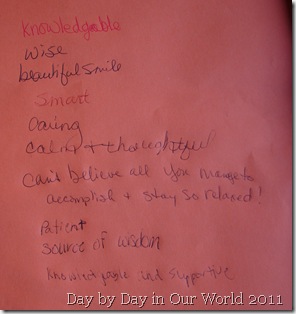 Knowledgable
Wise
beautiful smile
Smart
Caring
calm + thoughtful
Can't believe all you manage to
accomplish + stay so relaxed!
Patient
source of wisdom
and supportive
Day by Day in Our World 2011